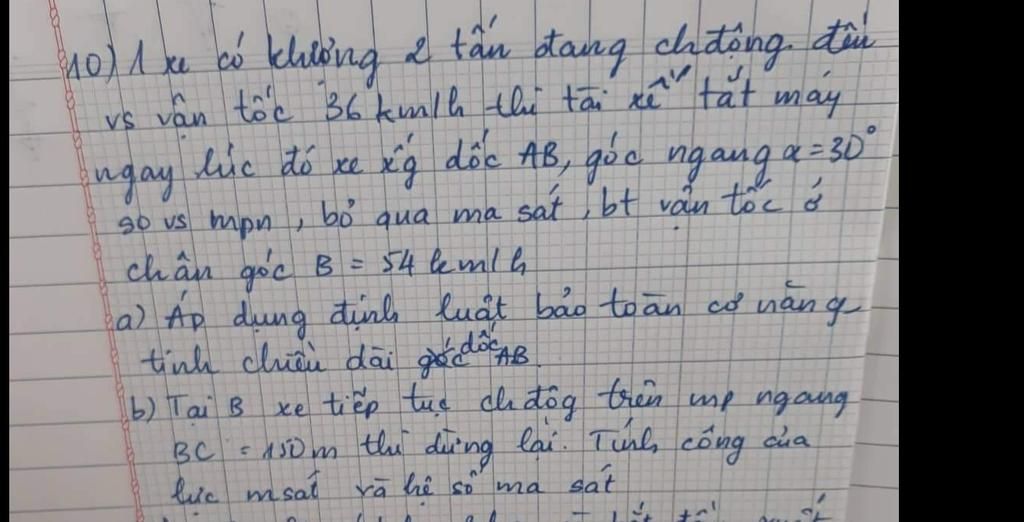 10) 1 xe có khường 2 tấn đang chđộng đều
vs vận tốc 36 km/h thì tài xế tắt máy
ngay lúc đó xe x'g dốc AB, góc ngang α = 30°
so vs mpn, bỏ qua ma sát, bt vận tốc ở
chân góc B = 54 km/h
a) Áp dụng định luật bảo toàn cơ năng
tính chiều dài dốc AB.
b) Tại B xe tiếp tục chđộg trên mp ngang
BC = 150m thì dừng lại. Tính công của
lực msat và hệ số ma sát